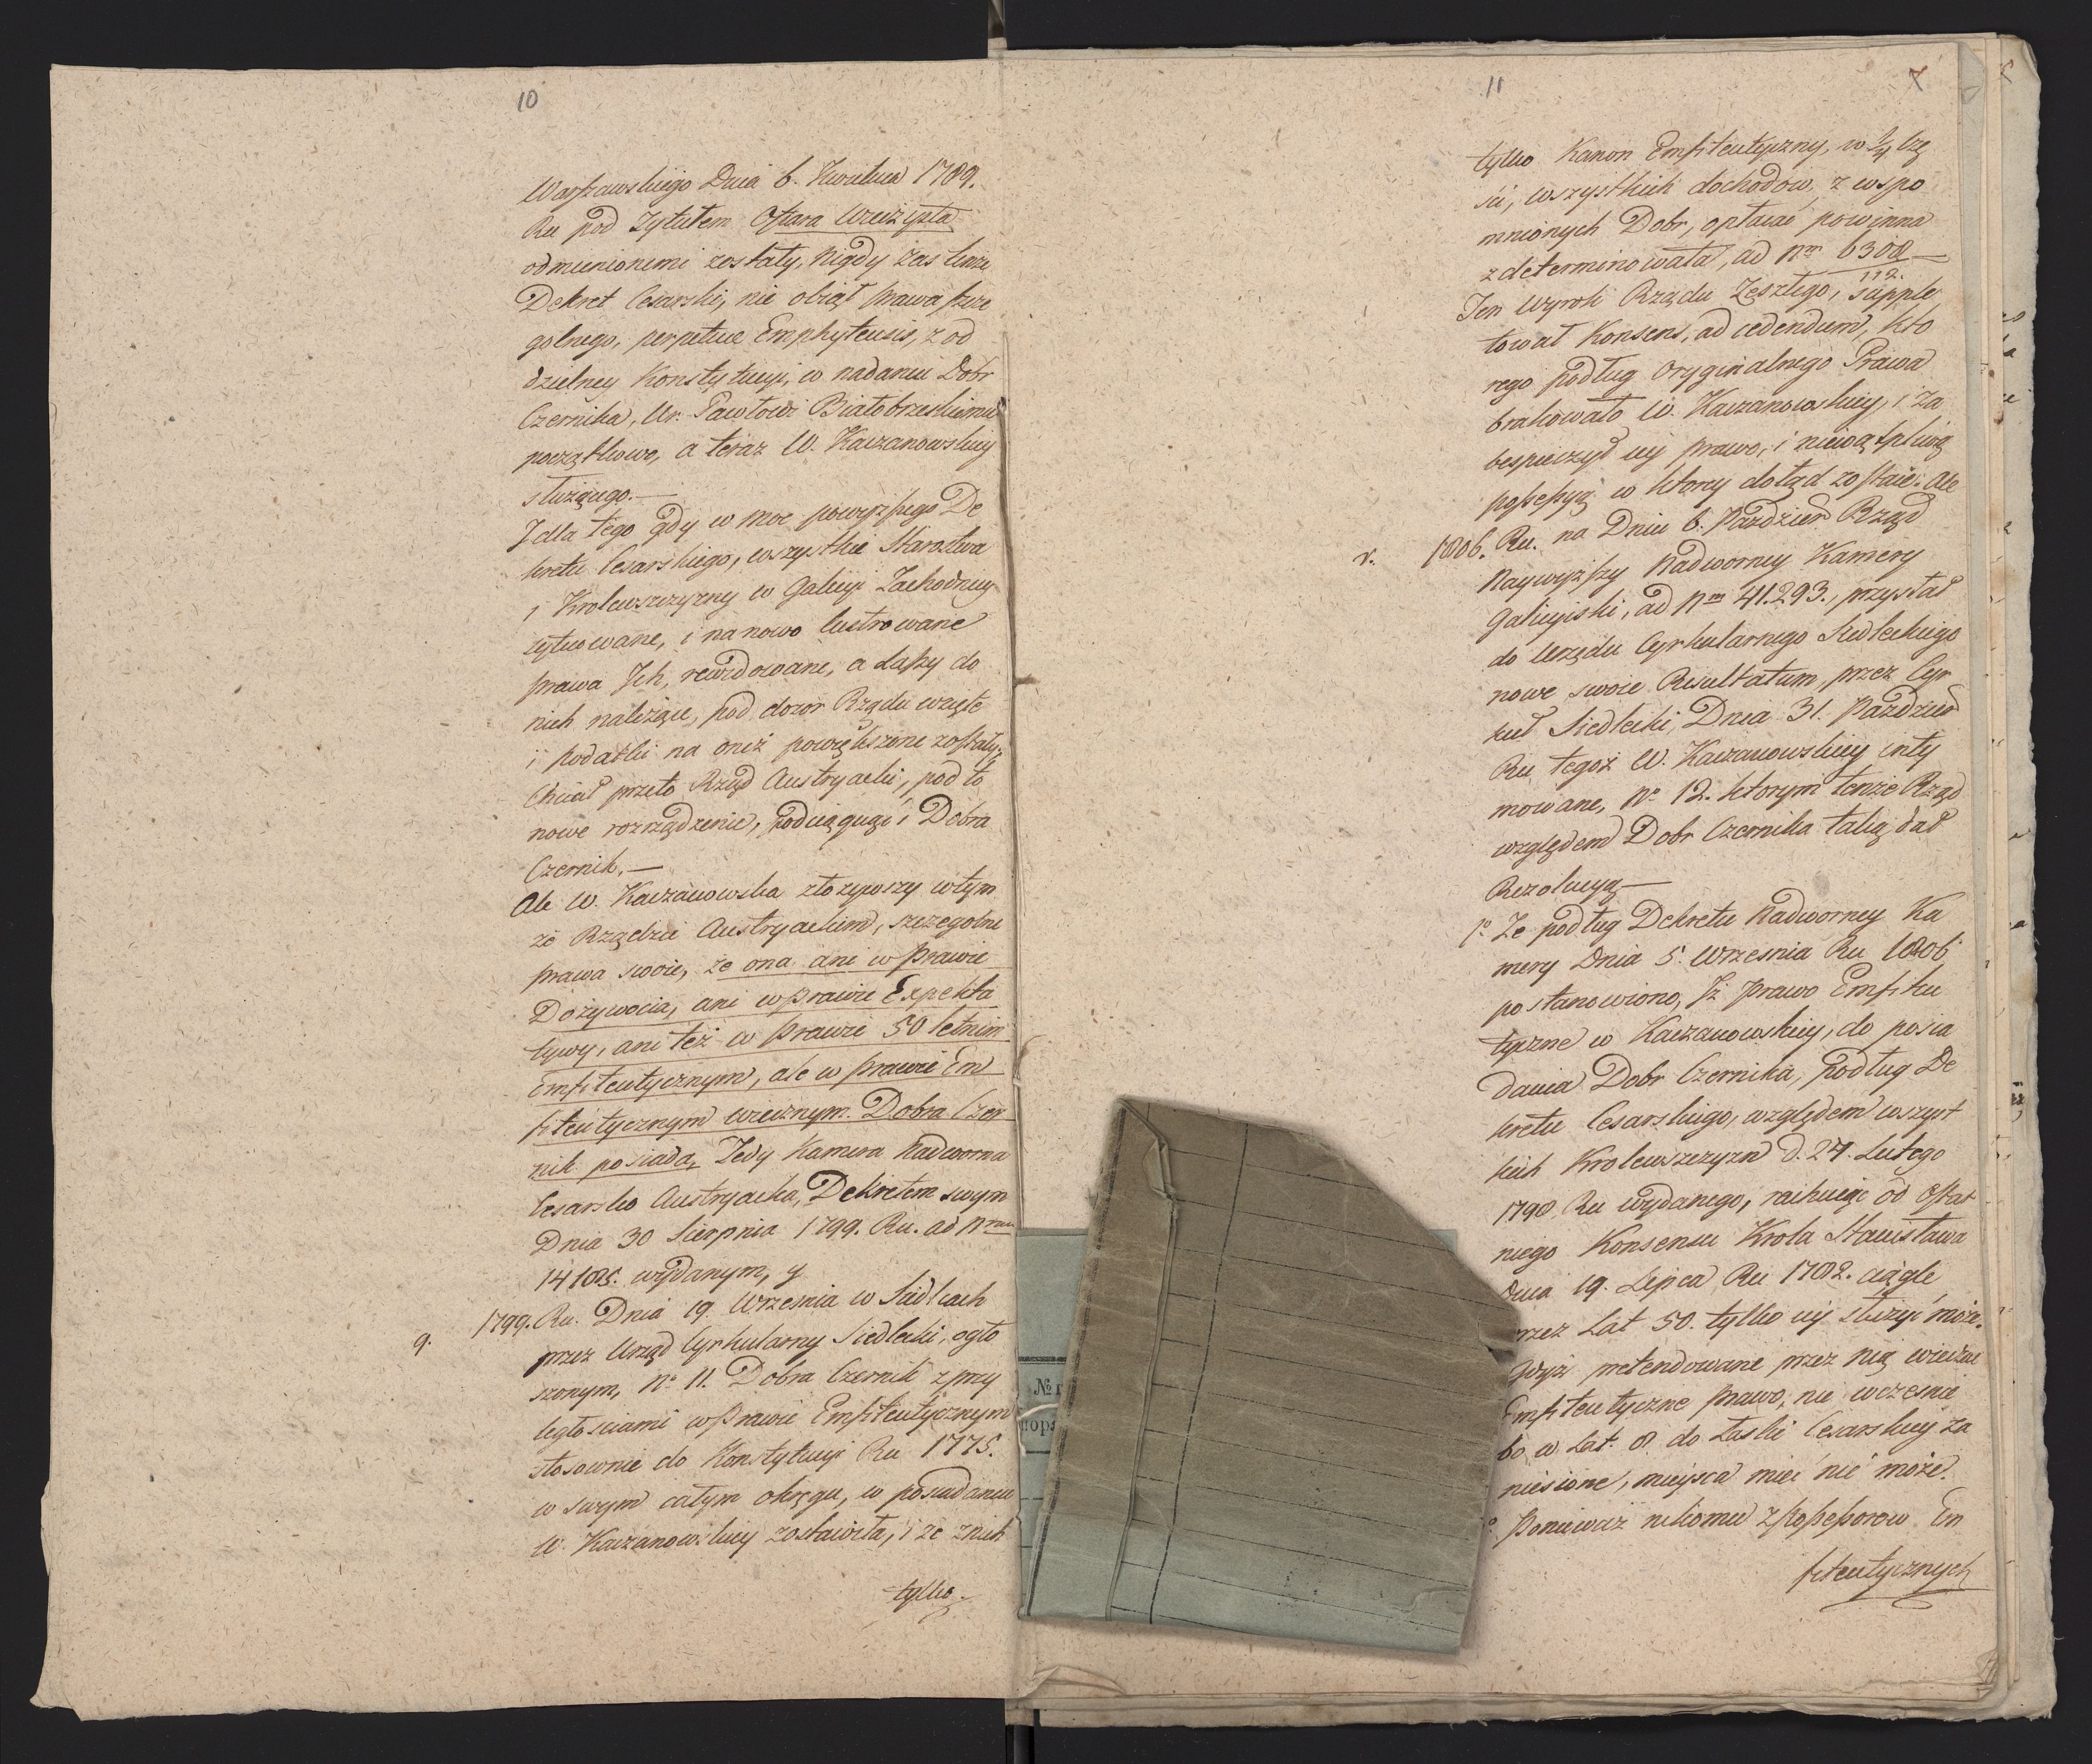 10
Warszawskiego Dnia 6. Kwietnia 1789.
Ru pod Tytułem Ofiara Wieczysta
odmienionemi zostały, Nigdy zas tenże
Dekret Cesarski, nie obiął prawa szcze
golnego, perpetuæ Emphyteusis, z od
dzielney Konstytucyi, w nadaniu Dobr
Czernika, Ur. Pawłowi Białobrzeskiemu
początkowo, a teraz W. Kaczanowskiey
służącego.—
I dla tego gdy w moc powyższego De
kretu Cesarskiego, wszystkie Starostwa
i Krolewszczyzny w Galicyi Zachodniey
sytuowane, i na nowo lustrowane
prawa Ich, rewidowane, a Lassy do
nich należące, pod dozor Rządu wzięte
i podatki na oneż powiększone zostały,
Chciał przeto Rząd Austryacki, pod to
nowe rozrządzenie, podciągnąć i Dobra
Czernik.—
Ale W. Kaczanowska złożywszy w tym
że Rządzie Austryackim, szczegolne
prawa swoie, że ona ani w prawie
Dożywocia, ani w prawie Expekta
tywy, ani też w prawie 50 letnim
Emfiteutycznym, ale w prawie Em
fiteutycznym wiecznym Dobra Czer
nik posiada, Tedy Kamera Nadworna
Cesarsko Austryacka, Dekretem swym
Dnia 30 Sierpnia 1799. Ru. ad Nrum
14185. wydanym, y
q. 1799. Ru. Dnia 19. Września w Siedlcach
przez Urząd Cyrkularny Siedlecki, ogło
szonym, No 11. Dobra Czernik z przy
ległosciami w prawie Emfiteutycznym
stosownie do Konstytucyi Ru 1775.
w swym całym okręgu, w posiadaniu
W. Kaczanowskiey zostawiła, i że z nich
tylko
11
7
tylko Kanon Emfiteutyczny, w 1/4 Czę
sci, wszystkich dochodow, z wspo
mnionych Dobr, opłacać powinna
zdeterminowała, ad Nm 6308
112.
Ten Wyrok Rządu Zeszłego, supple
tował Konsens, ad cedendum, kto
rego podług Oryginalnego Prawa
brakowało W. Kaczanowskiey, i za
bespieczył iey prawo, i niewątpliwą
possessyą w ktorey dotąd zostaie. Ale
r. 1806. Ru. na Dniu 6. Pazdzier Rząd
Naywyższy Nadworney Kamery
Galicyiski, ad Nm 41.293., przysłał
do Urzędu Cyrkularnego Siedleckiego
nowe swoie Resultatum, przez Cyr
kuł Siedlecki, Dnia 31. Pazdzier
Ru tegoż W. Kaczanowskiey inty
mowane, No 12. ktorym tenże Rząd
względem Dobr Czernika taką dał
Rezolucyą—
1o Ze podług Dekretu Nadworney Ka
mery Dnia 5. Wrzesnia Ru 1806
postanowiono, Iż prawo Emfiteu
tyczne W Kaczanowskiey, do posia
dania Dobr Czernika, podług De
kretu Cesarskiego, względem wszyst
kich Krolewszczyzn d. 24. Lutego
1798 Ru wydanego, rachuiąc od ostat
niego Konsensu Krola Stanisława
Dnia 19. Lipca Ru 1782. ciągle
przez Lat 50. tylko iey służyć może.
Gdyż pretendowane przez nią wieczne
Emfiteutyczne prawo, nie wczesnie
bo w Lat. 8. do Łaski Cesarskiey za
niesione, mieysca mieć nie może.
Ponieważ nikomu z Possessorow Em
fiteutycznych
№
пор